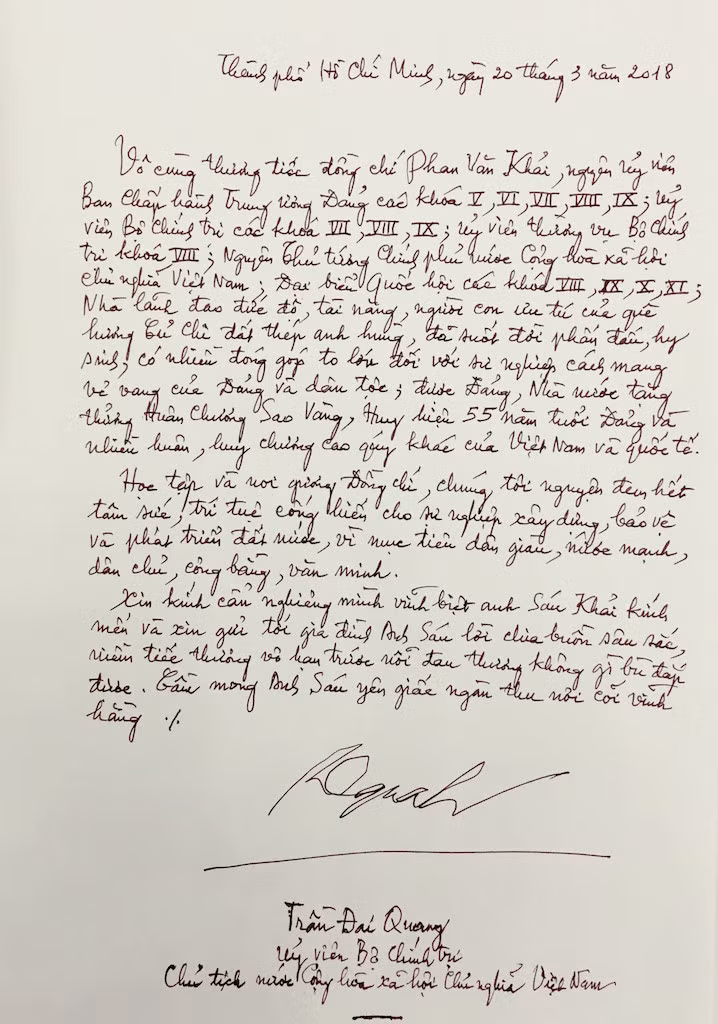 Thành phố Hồ Chí Minh, ngày 20 tháng 3 năm 2018
Vô cùng thương tiếc đồng chí Phan Văn Khải, nguyên Uỷ viên
Ban Chấp hành Trung ương Đảng các khoá V, VI, VII, VIII, IX; Uỷ
viên Bộ Chính trị các khoá VII, VIII, IX; Uỷ viên thường vụ Bộ Chính
trị khoá VIII; Nguyên Thủ tướng Chính phủ nước Cộng hòa xã hội
Chủ nghĩa Việt Nam; Đại biểu Quốc hội các khoá VIII, IX, X, XI;
Nhà lãnh đạo đức độ, tài năng, người con ưu tú của quê
hương Củ Chi đất thép anh hùng, đã suốt đời phấn đấu, hy
sinh, có nhiều đóng góp to lớn đối với sự nghiệp cách mạng
vẻ vang của Đảng và dân tộc; được Đảng, Nhà nước tặng
thưởng Huân Chương Sao Vàng, Huy hiệu 55 năm tuổi Đảng và
nhiều huân, huy chương cao quý khác của Việt Nam và quốc tế.
Học tập và noi gương Đồng chí, chúng tôi nguyện đem hết
tâm sức, trí tuệ cống hiến cho sự nghiệp xây dựng, bảo vệ
và phát triển đất nước, vì mục tiêu dân giàu, nước mạnh,
dân chủ, công bằng, văn minh.
Xin kính cẩn nghiêng mình vĩnh biệt anh Sáu Khải kính
mến và xin gửi tới gia đình Anh Sáu lời chia buồn sâu sắc,
niềm tiếc thương vô hạn trước nỗi đau thương không gì bù đắp
được. Cầu mong Anh Sáu yên giấc ngàn thu nơi cõi vĩnh
hằng ./.
Trần Đại Quang
Uỷ viên Bộ Chính trị
Chủ tịch nước Cộng hòa xã hội Chủ nghĩa Việt Nam